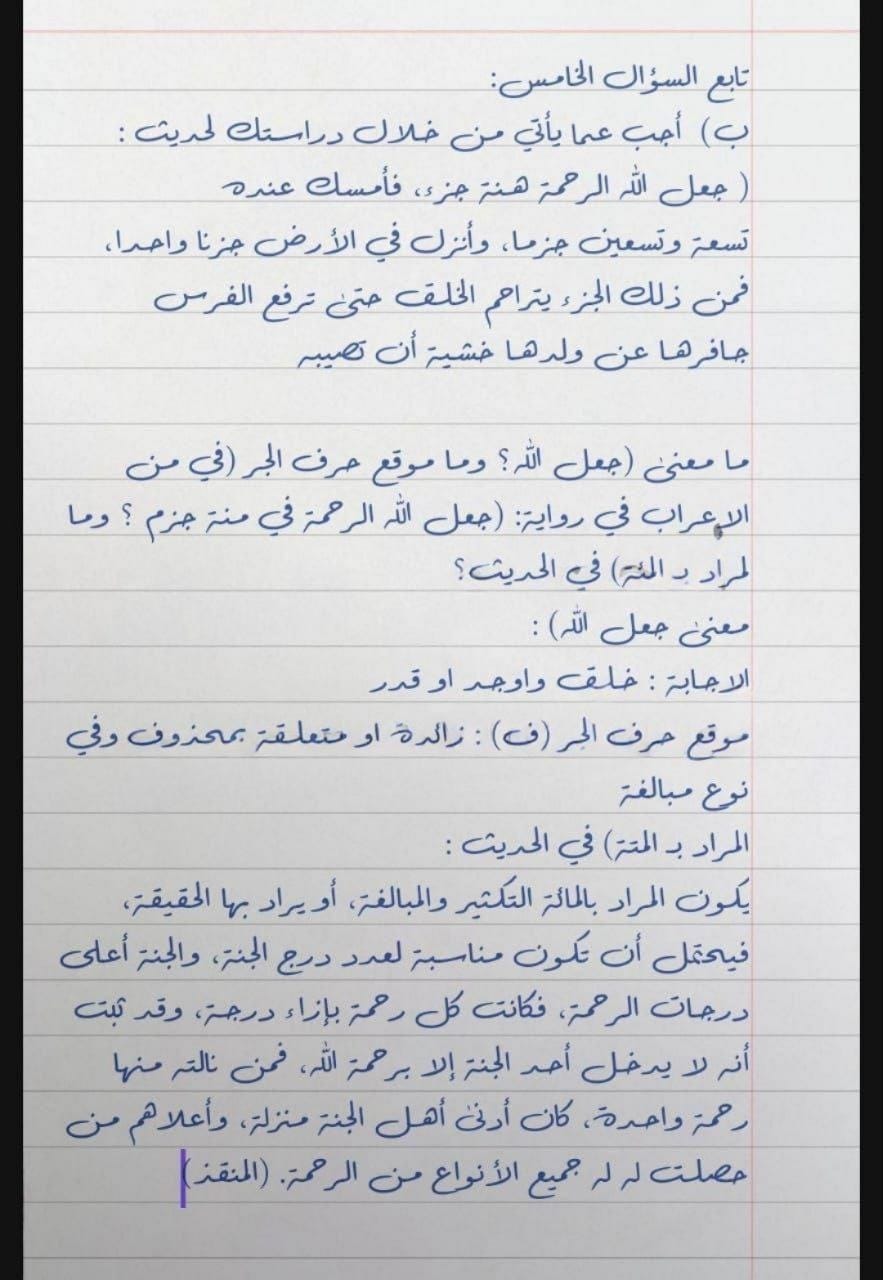 تابع السؤال الخامس:
ب) أجب عما يأتي من خلال دراستك لحديث :
( جعل الله الرحمة هنة جزء، فأمسك عنده
تسعة وتسعين جزما، وأنزل في الأرض جزنا واحدا،
فمن ذلك الجزء يتراحم الخلق حتى ترفع الفرس
جافرها عن ولدها خشية أن تصيبه
ما معنى (جعل الله؟ وما موقع حرف الجر (في من
الاعراب في رواية: (جعل الله الرحمة في منة جزم ؟ وما
لمراد بـ المئة) في الحديث؟
معنى جعل الله) :
الاجابة : خلق واوجد او قدر
موقع حرف الجر (ف) : زائدة او متعلقة بمحذوف وفي
نوع مبالغة
المراد بـ المتة) في الحديث :
يكون المراد بالمائة التكثير والمبالغة، أو يراد بها الحقيقة،
فيحتمل أن تكون مناسبة لعدد درج الجنة، والجنة أعلى
درجات الرحمة، فكانت كل رحمة بإزاء درجة، وقد ثبت
أنه لا يدخل أحد الجنة إلا برحمة الله، فمن نالته منها
رحمة واحدة، كان أدنى أهل الجنة منزلة، وأعلاهم من
حصلت له له جميع الأنواع من الرحمة. (المنقذ)